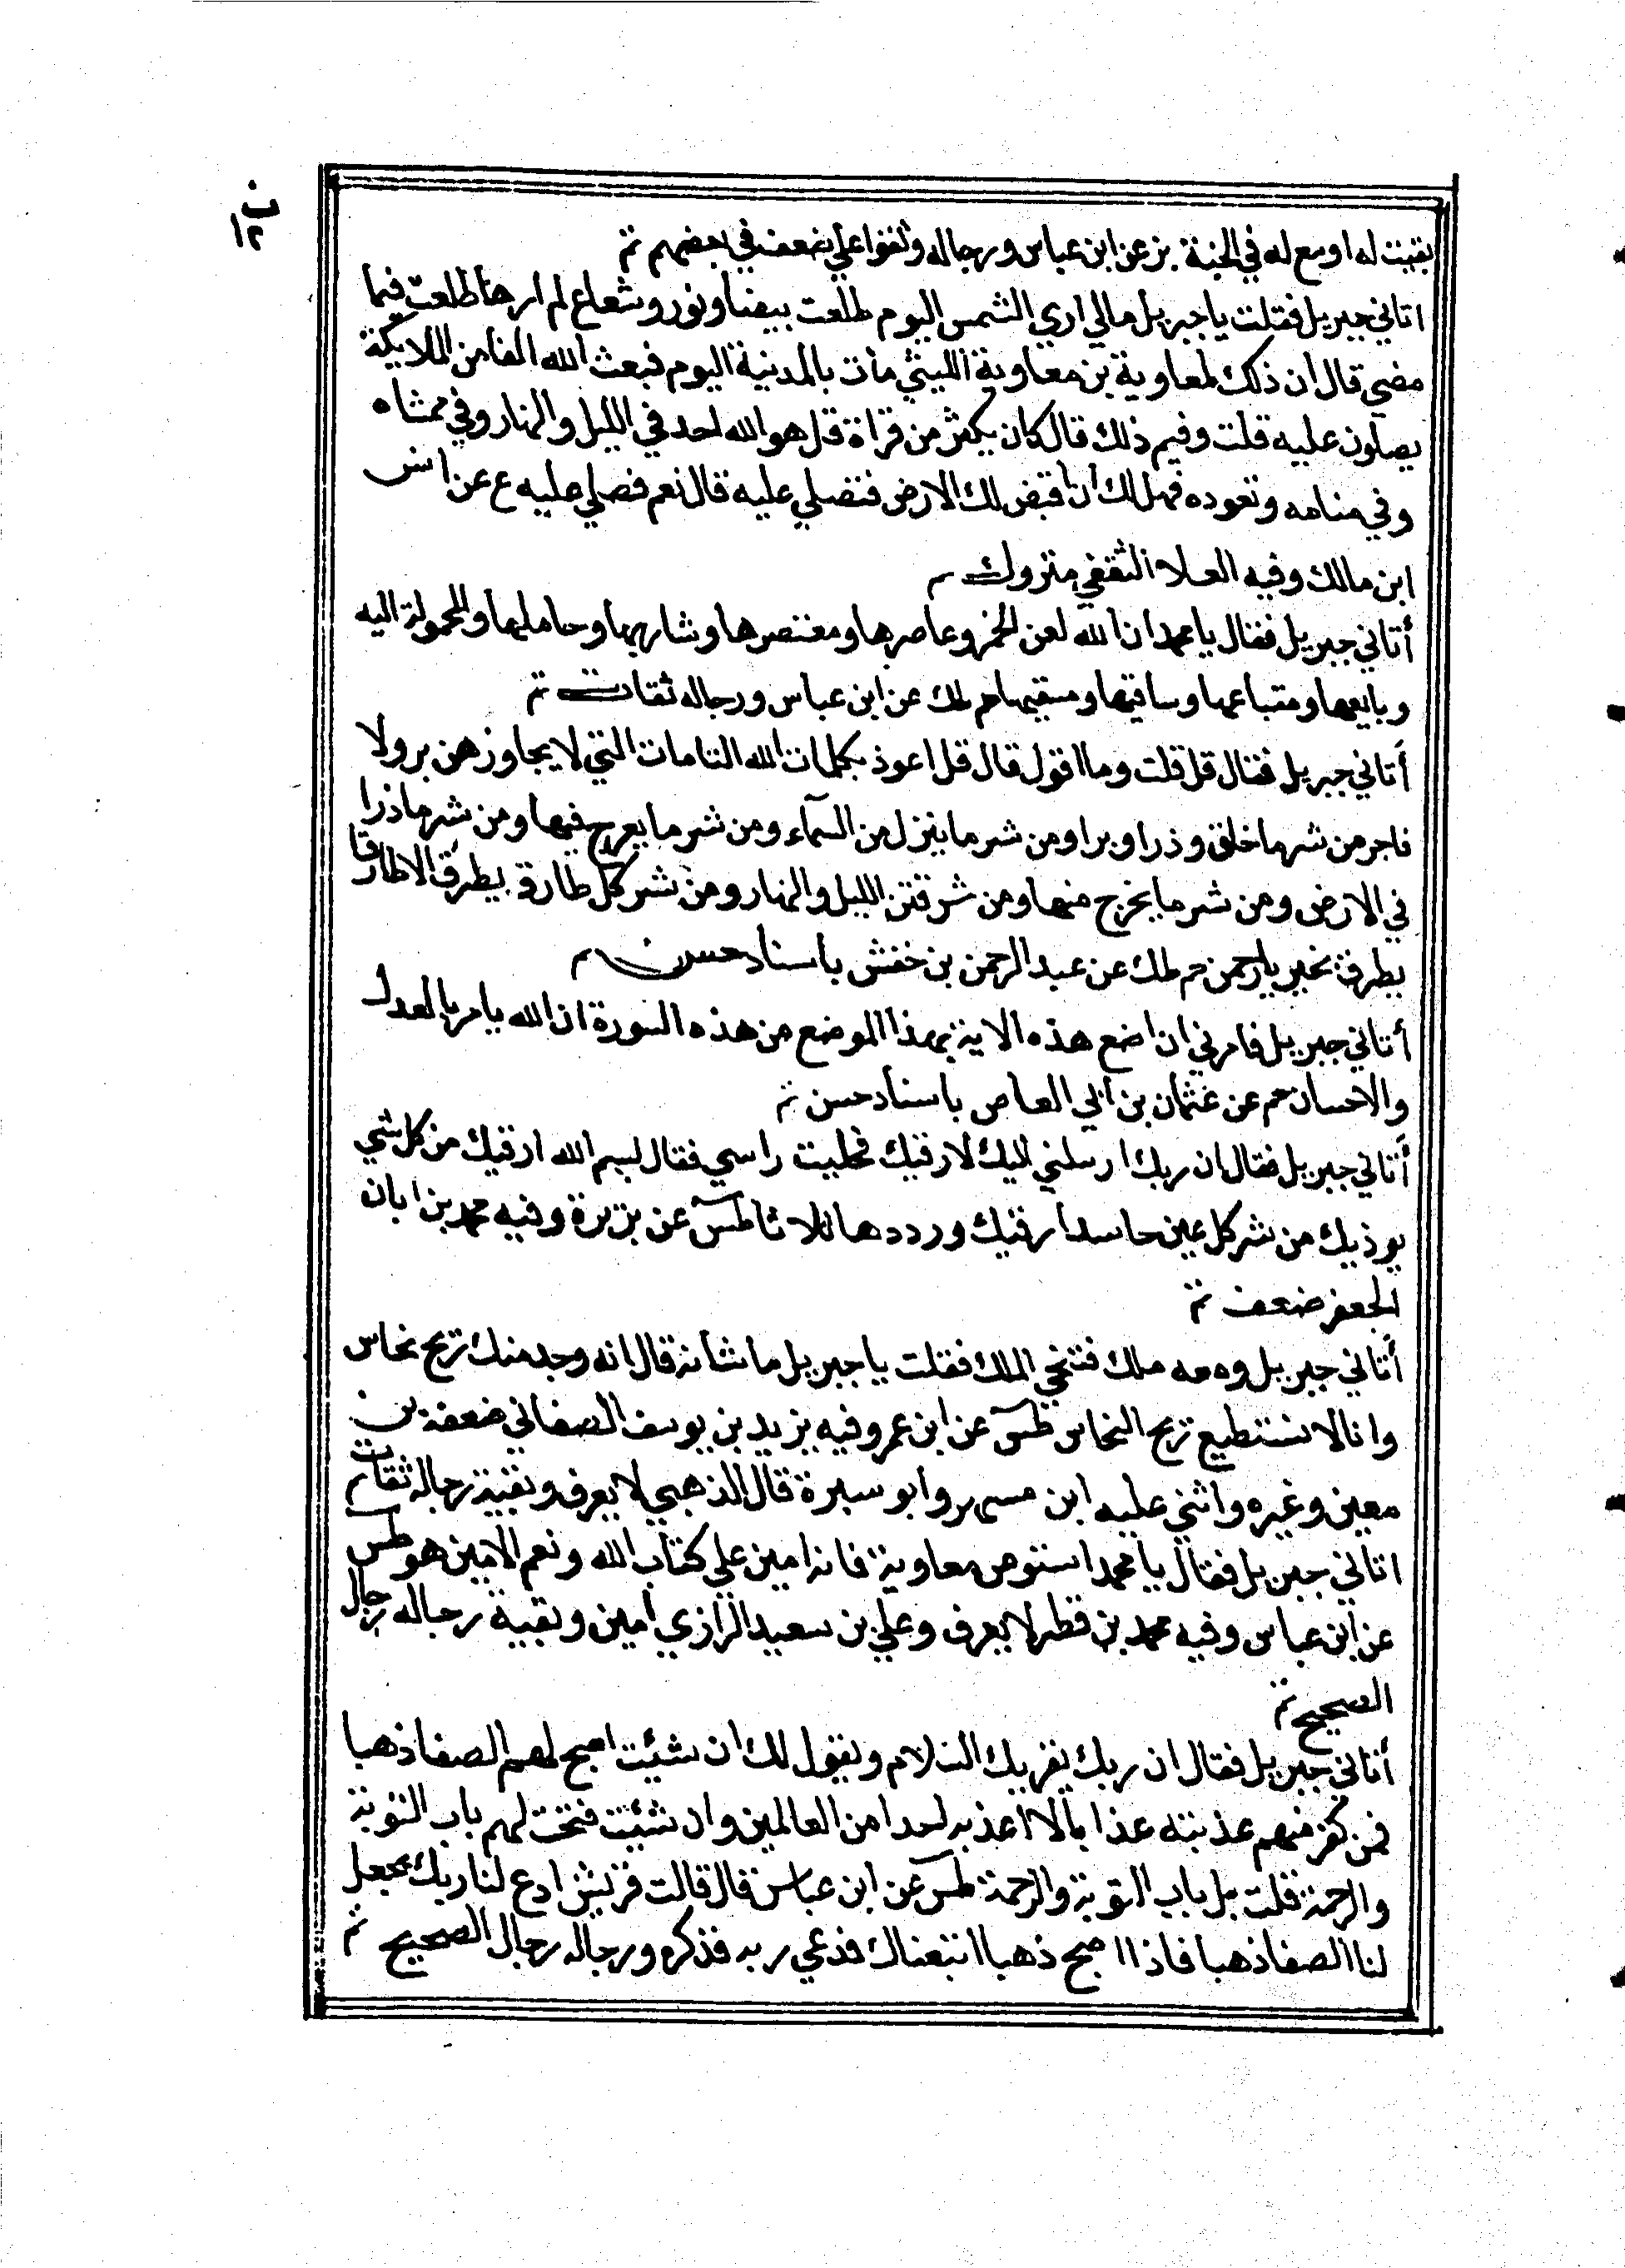 ن
١٢
بقيت له اوسع له في الجنة بز عن ابن عباس ورجاله وثقوا علي ضعف في بعضهم تم
اتاني جبريل فقلت يا جبريل مالي اري الشمس اليوم طلعت بيضا ونور وشعاع لم ارها طلعت فيما
مضي قال ان ذلك لمعاوية بن معاوية الليثي مات بالمدينة اليوم فبعث الله الفا من الملايكة
يصلون عليه قلت وفيم ذلك قال كان يكثر من قراة قل هو الله احد في الليل والنهار وفي ممشاه
وفي منامه وتعوده فهل لك ان اقبض لك الارض فتصلي عليه قال نعم فصلي عليه ع عن انس
ابن مالك وفيه العلا الثقفي متروك
أتاني جبريل فقال يا محمد ان الله لعن الخمر وعاصرها ومعتصرها وشاربها وحاملها والمحمولة اليه
وبايعها ومتباعها وساقيها ومسقيها حم طك عن ابن عباس ورجاله ثقات تم
أتاني جبريل فقال قل قلت وما اقول قال قل اعوذ بكلمات الله التامات التي لا يجاوزهن بر ولا
فاجر من شر ما خلق وذرا وبرا ومن شر ما ينزل من السمآء ومن شر ما يعرج فيها ومن شر ما ذرا
في الارض ومن شر ما يخرج منها ومن شر فتن الليل والنهار ومن شر كل طارق يطرق الا طارقا
يطرق بخير يا رحمن حم طك عن عبد الرحمن بن خفش باسناد حسن
أتاني جبريل فامرني ان اضع هذه الاية بهذا الموضع من هذه السورة ان الله يامر بالعدل
والاحسان حم عن عثمان بن ابي العاص باسناد حسن تم
أتاني جبريل فقال ان ربك ارسلني اليك لارقيك فحليت راسي فقال بسم الله ارقيك من كل شي
يوذيك من شر كل عين حاسد ارقيك ورددها ثلاثا طس عن بزيرة وفيه محمد بن ابان
الجعفر ضعف تم
أتاني جبريل ومعه ملك فتنحي الملك فقلت يا جبريل ما شانه قال انه وجد منك ريح نحاس
وانا لا نستطيع ريح النحاس طس عن ابن عمر وفيه يزيد بن يوسف الصفاني ضعفه بن
معين وغيره واثني عليه ابن مسهر وابو سبرة قال الذهبي لا يعرف وبقية رجاله ثقات
اتاني جبريل فقال يا محمد استوص معاوية فانه امين علي كتاب الله ونعم الامين هو طس
عن ابن عباس وفيه محمد بن قطر لا يعرف وعلي بن سعيد الرازي امين وبقية رجاله رجال
الصحيح تم
أتاني جبريل فقال ان ربك يقريك السلام ويقول لك ان شيئت اصبح لهم الصفا ذهبا
فمن كفر منهم عذبته عذابا لا اعذبه احدا من العالمين وان شئيت فتحت لهم باب التوبة
والرحمة قلت بل باب التوبة والرحمة طس عن ابن عباس قال قالت قريش ادع لنا ربك يجعل
لنا الصفا ذهبا فاذا اصبح ذهبا اتبعناك فدعي ربه فذكره ورجاله رجال الصحيح تم